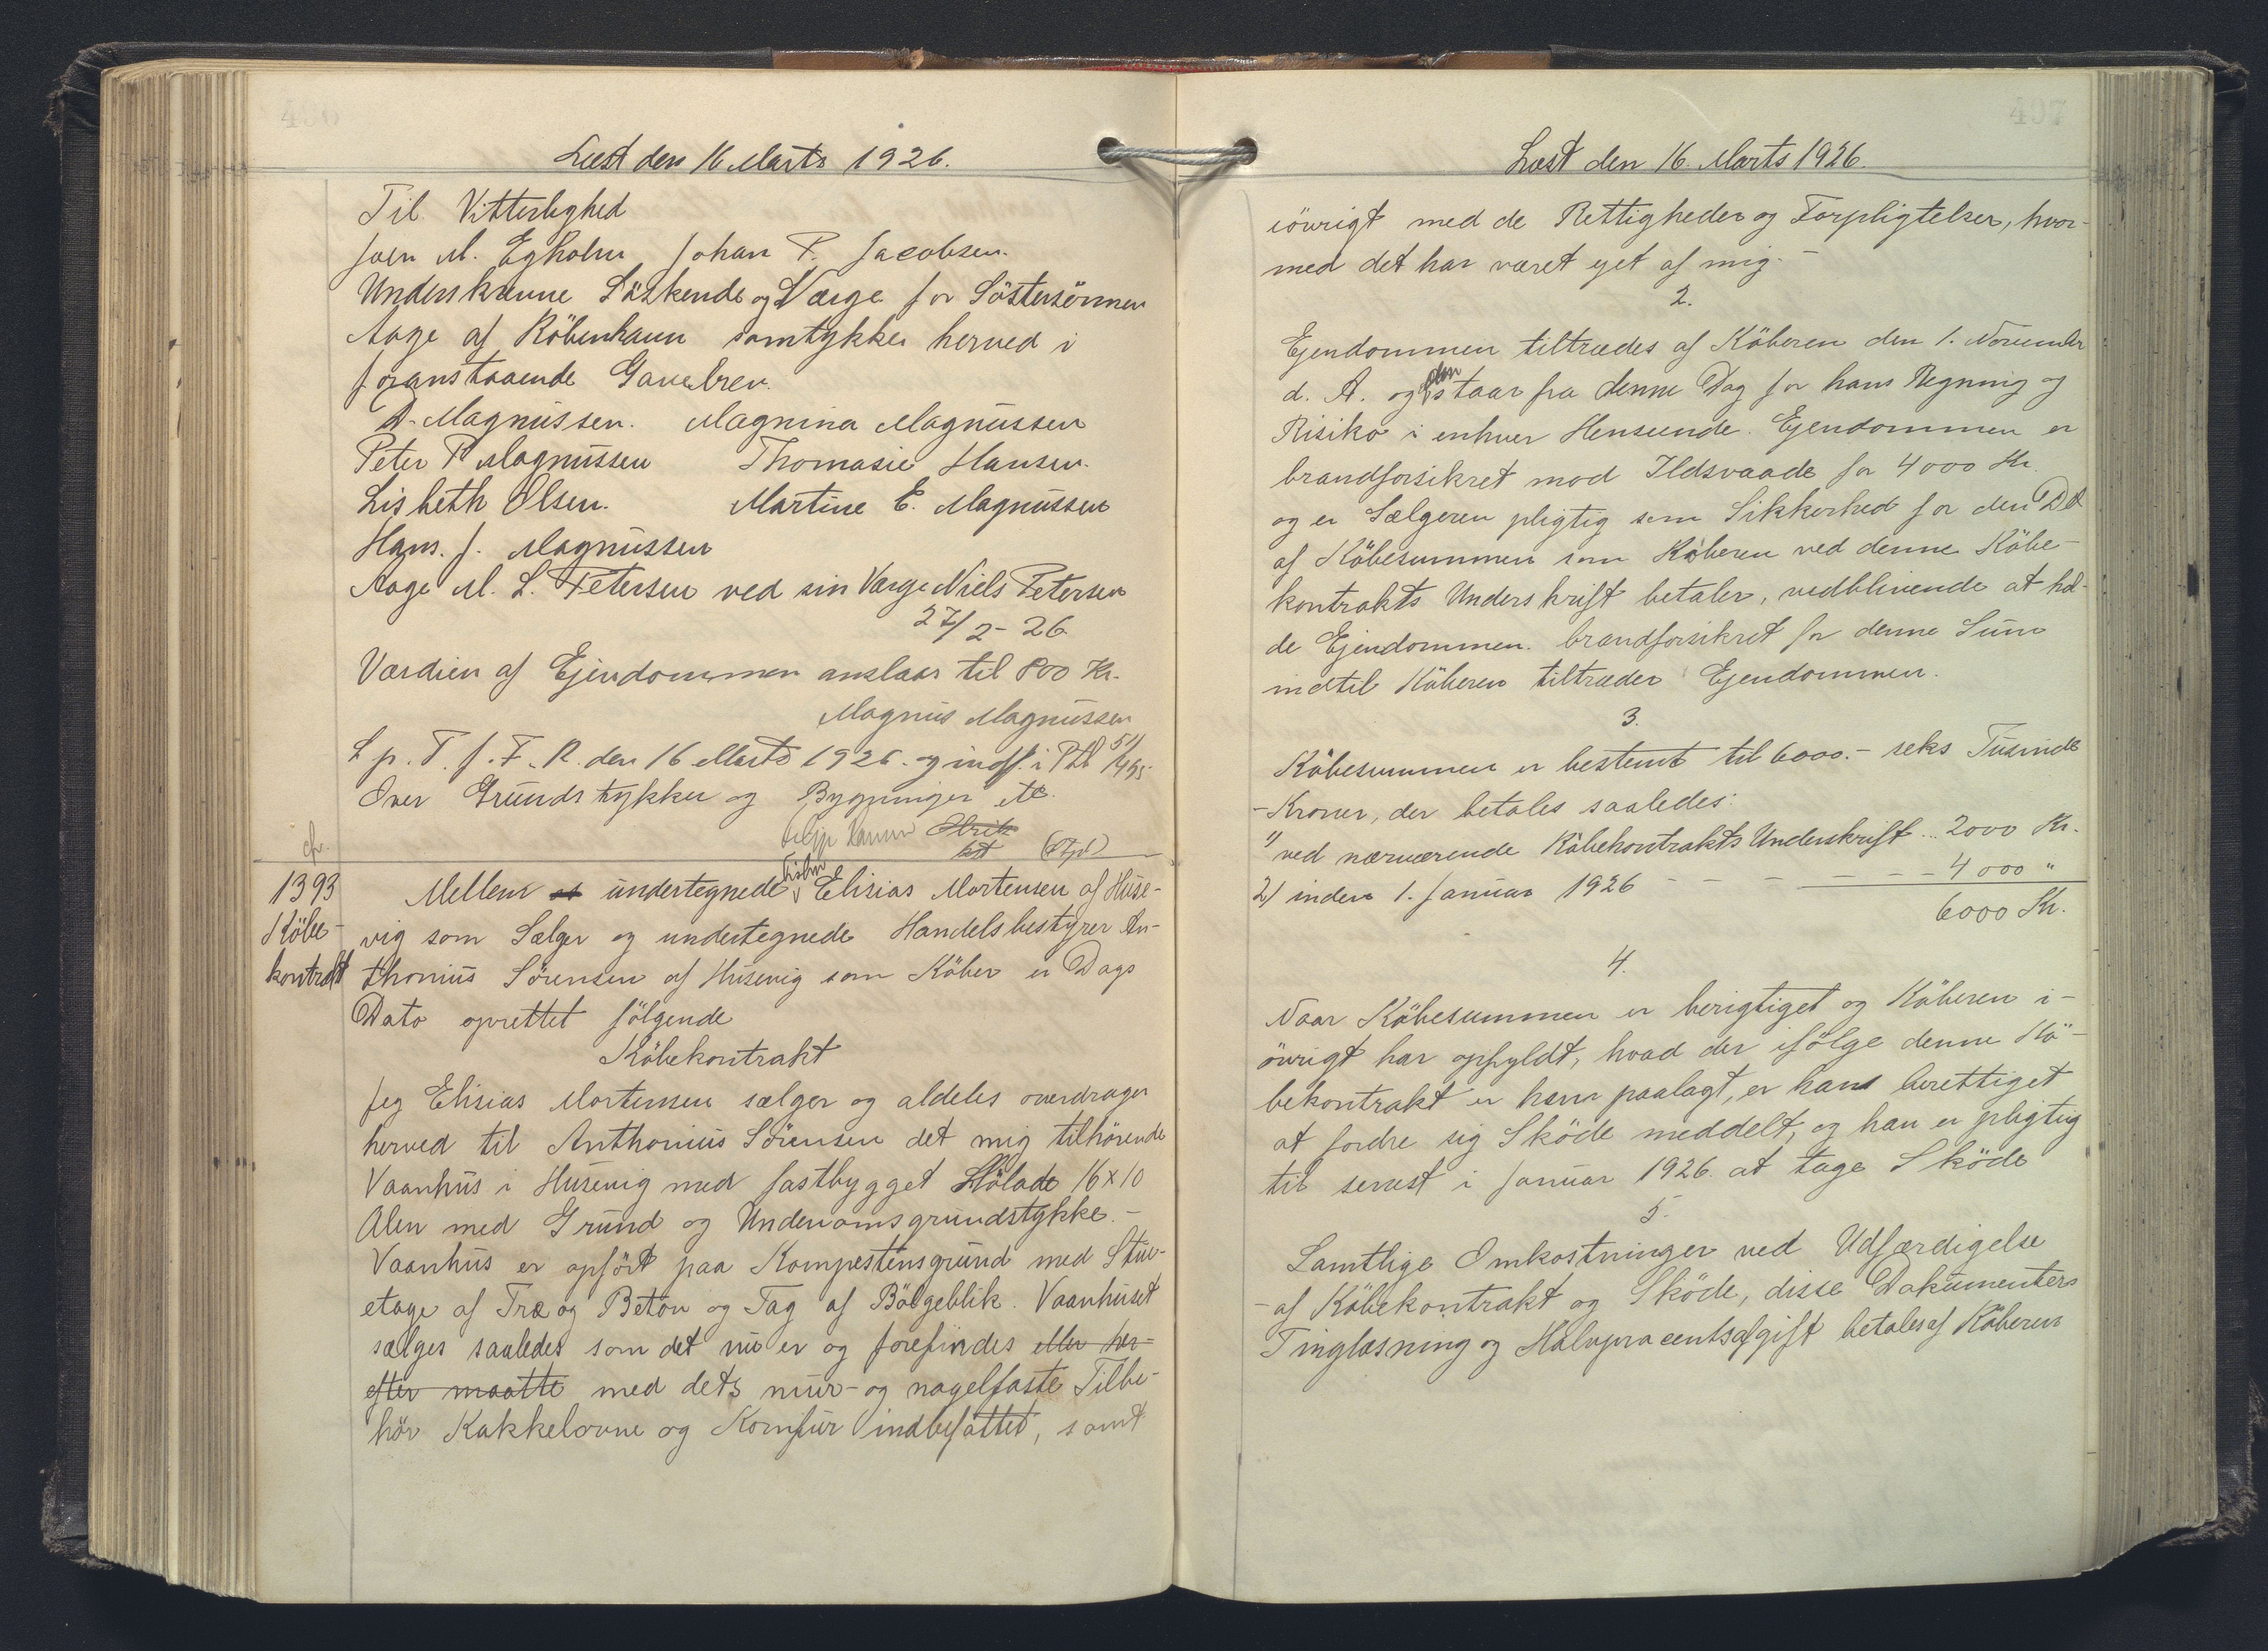 496
Læst den 16 Marts 1926.
Til Vitterlighed
Joen M. Egholm Johan P. Jacobsen.
Underskrevne Söskende og Værge for Söstersönnen
Aage af Köbenhavn samtykker herved i
foranstaaende Gavebrev.
D. Magnussen. Magnina Magnussen
Peter P Magnussen Thomasie Hansen.
Lisbeth Olsen. Martine E. Magnussen
Hans. J. Magnussen
Aage M. L. Petersen ved sin Værge Niels Petersen
27/2-26.
Værdien af Ejendommen anslaas til 800 Kr.
Magnus Magnussen
L p. T. f. F. R. den 16 Marts 1926. og indf. i Ptb 51/495.
Over Grundstykker og Bygninger etc.
cfr.
1393
Köbe-
kontrakt
Mellem undertegnede Fisker Elisias Mortensen af Huse-
vig som Sælger og undertegnede Handelsbestyrer An-
thonius Sörensen af Husevig som Köber er Dags
Dato oprettet fölgende
Köbekontrakt
Jeg Elisias Mortensen sælger og aldeles overdrager
herved til Anthonius Sörensen det mig tilhörende
Vaanhus i Husevig med fastbygget Hölade 16×10
Alen med Grund og Udenomsgrundstykke.-
Vaanhus er opfört paa Kampestensgrund med Stue-
etage af Træ og Beton og Tag af Bölgeblik. Vaanhuset
sælges saaledes som det nu er og forefindes eller her-
efter maatte med dets mur- og nagelfaste Tilbe-
hör Kakkelovne og Komfur indbefattet, samt
497
Læst den 16. Marts 1926.
iövrigt med de Rettigheder og Forpligtelser, hvor-
med det har været ejet af mig.-
2.
Ejendommen tiltrædes af Köberen den 1. November
d. A. og den staar fra denne Dag for hans Regning og
Risiko i enhver Henseende. Ejendommen er
brandforsikret mod Ildsvaade for 4000 Kr.
og er Sælgeren pligtig som Sikkerhed for den Del
af Köbesummen som Köberen ved denne Köbe-
kontrakts Underskrift betaler, vedblivende at hol-
de Ejendommen brandforsikret for denne Sum
indtil Köberen tiltræder Ejendommen.
3.
Köbesummen er bestemt til 6000.- seks Tusinde
-Kroner, der betales saaledes:
1) ved nærværende Köbekontrakts Underskrift ... 2000 Kr.
2) inden 1. Januar 1926 - - - - - - 4000 "
6000 Kr.
4.
Naar Köbesummen er berigtiget og Köberen i-
övrigt har opfyldt, hvad der ifölge denne Kö-
bekontrakt er ham paalagt, er han berettiget
at fordre sig Sköde meddelt, og han er pligtig
til senest i Januar 1926. at tage Sköde
5.
Samtlige Omkostninger ved Udfærdigelse
-af Köbekontrakt og Sköde, disse Dokumenters
Tinglæsning og Halvprocentsafgift betales af Köberen